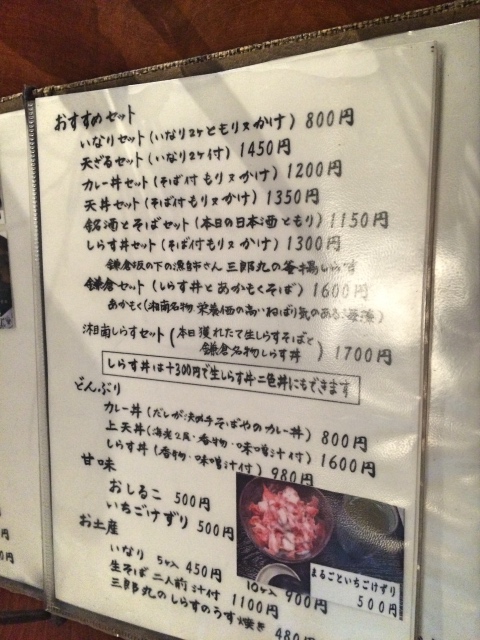 おすすめセット
いなりセット(いなり2ケともり又かけ) 800円
天ざるセット(いなり2ケ付) 1450円
カレー丼セット(そば付もり又かけ) 1200円
天丼セット(そば付もり又かけ) 1350円
銘酒とそばセット(本日の日本酒ともり) 1150円
しらす丼セット(そば付もり又かけ) 1300円
鎌倉坂の下の漁師さん 三郎丸の釜揚しらす
鎌倉セット(しらす丼とあかもくそば) 1600円
あかもく(湘南名物 栄養価の高いねばり気のある海藻)
湘南しらすセット(本日獲れたて生しらすそばと
鎌倉名物しらす丼) 1700円
しらす丼は+300円で生しらす丼二色丼にもできます
どんぶり
カレー丼(だしが決め手そばやのカレー丼) 800円
上天丼(海老2尾・香物・味噌汁付) 1600円
しらす丼(香物・味噌汁付) 980円
甘味
おしるこ 500円
いちごけずり 500円
まるごといちごけずり
500円
お土産
いなり 5ヶ入 450円 10ヶ入 900円
生そば二人前汁付 1100円
三郎丸のしらすのうす焼き 480円